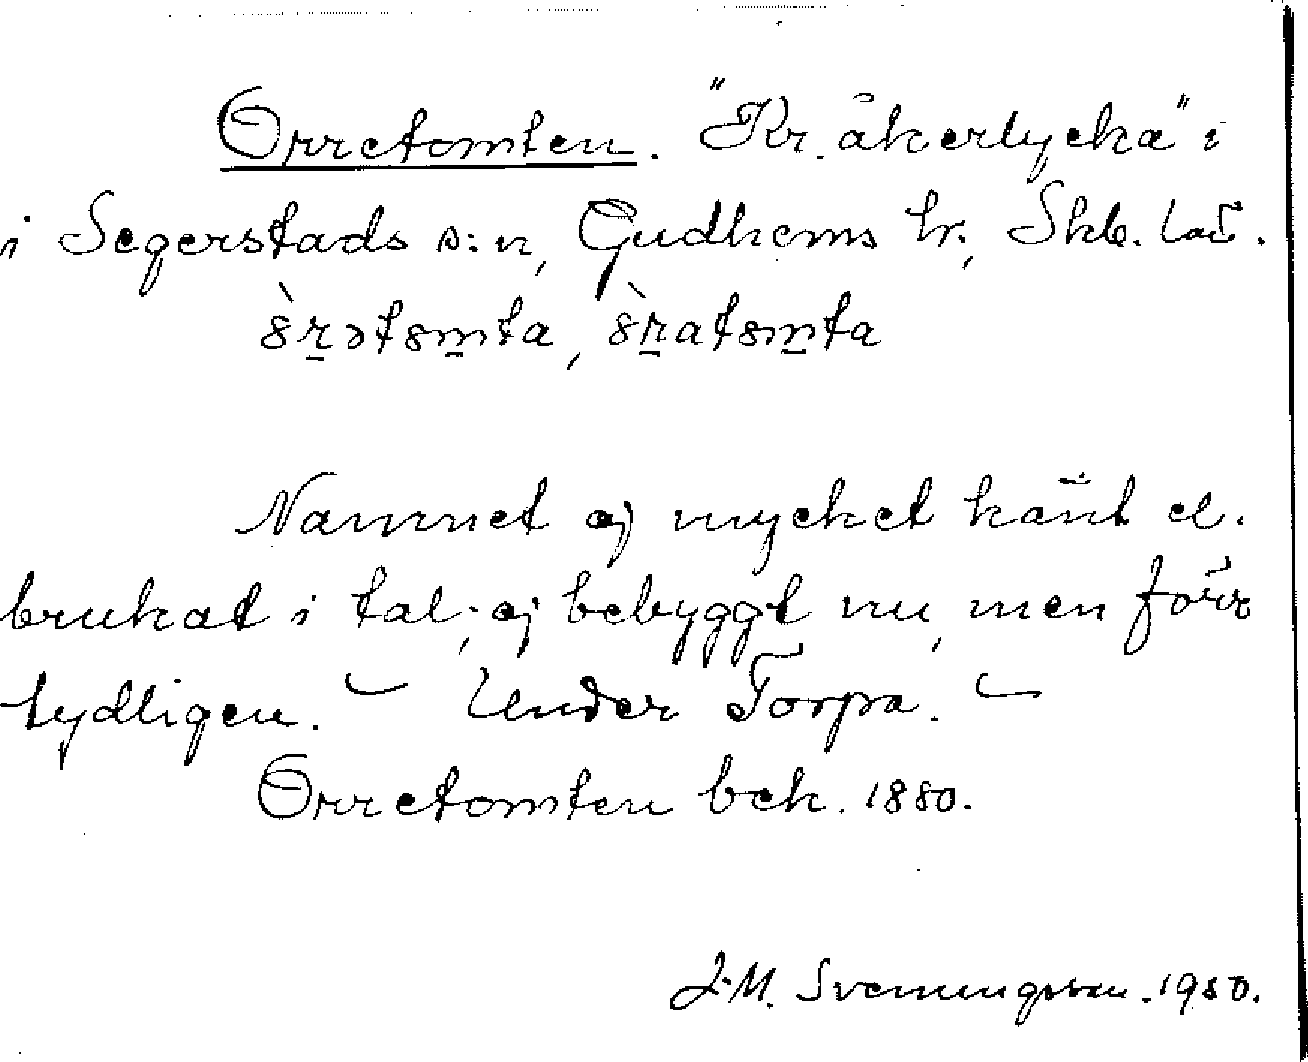 Orretomten. "Kr. åkerlycka" i
i Segerstads s:n, Gudhems hr, Skb. län.
Namnet ej mycket känt el.
brukat i tal; ej bebyggt nu, men förr
tydligen. — Under Torpa. —
Orretomten bek. 1880.
J.M. Svenningsson. 1950.